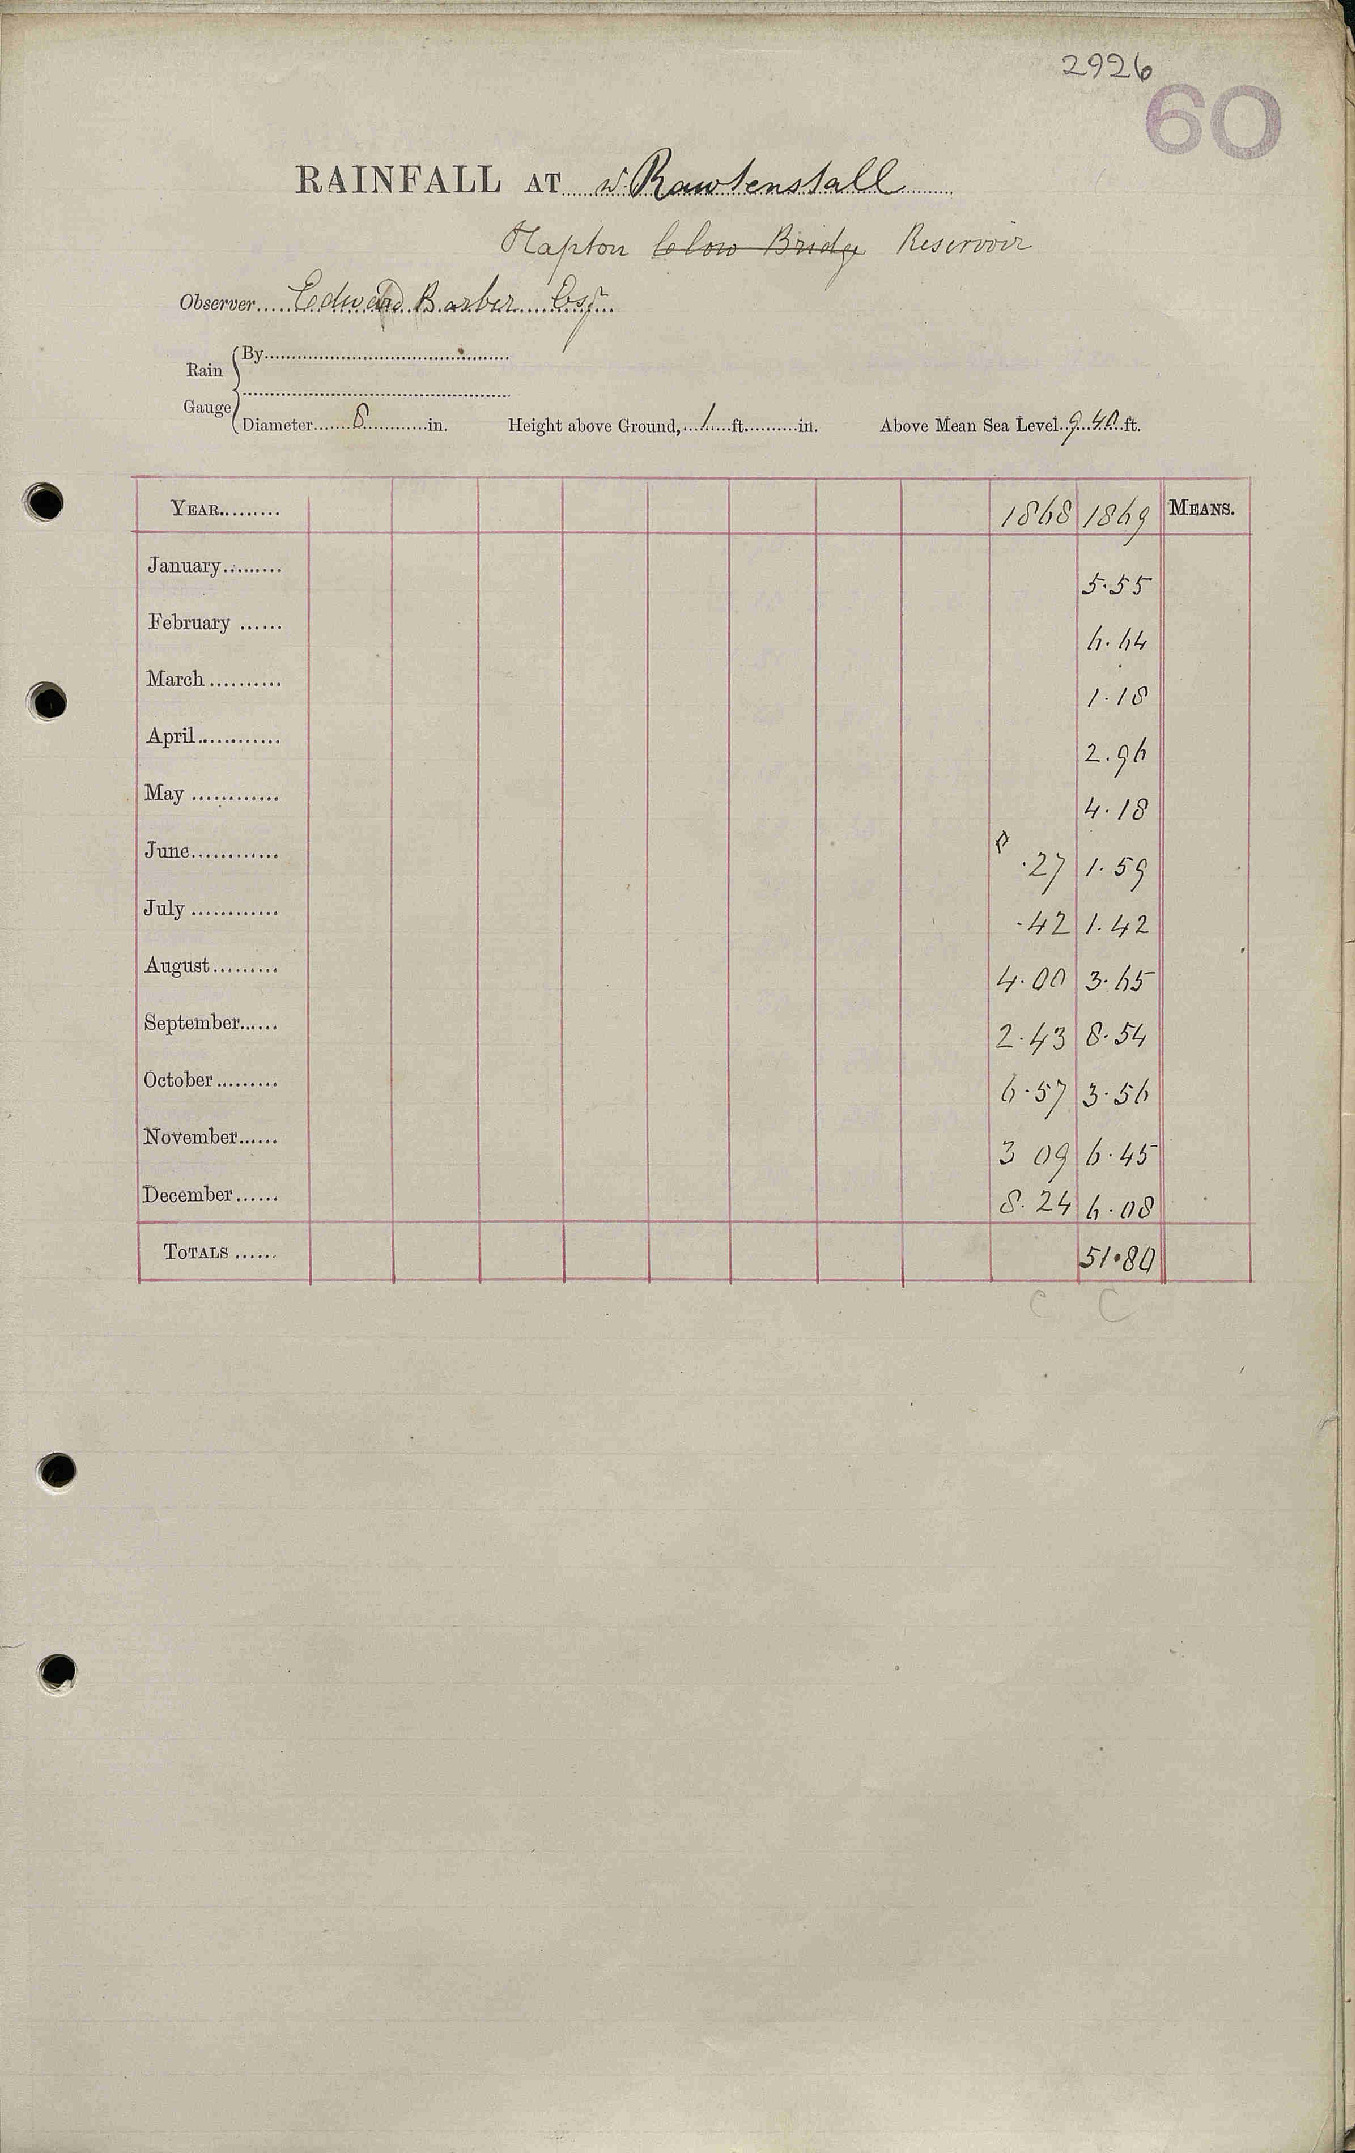 2926
60
RAINFALL AT nr. Rawtenstall
Hapton Clow Bridge Reservoir
Observer..... Edward Barber Esq.
Rain Gauge
By
Diameter 8 in. Height above Ground, 1 ft. in. Above Mean Sea Level 940 ft.
YEAR......... 1868 1869 MEANS.
January......... 5.55
February ...... 6.64
March.......... 1.18
April............ 2.96
May ............ 4.18
June............ .27 1.59
July ............ .42 1.42
August......... 4.00 3.65
September...... 2.43 8.54
October......... 6.57 3.56
November...... 3 09 6.45
December...... 8.24 6.08
TOTALS ...... 51.80
C C